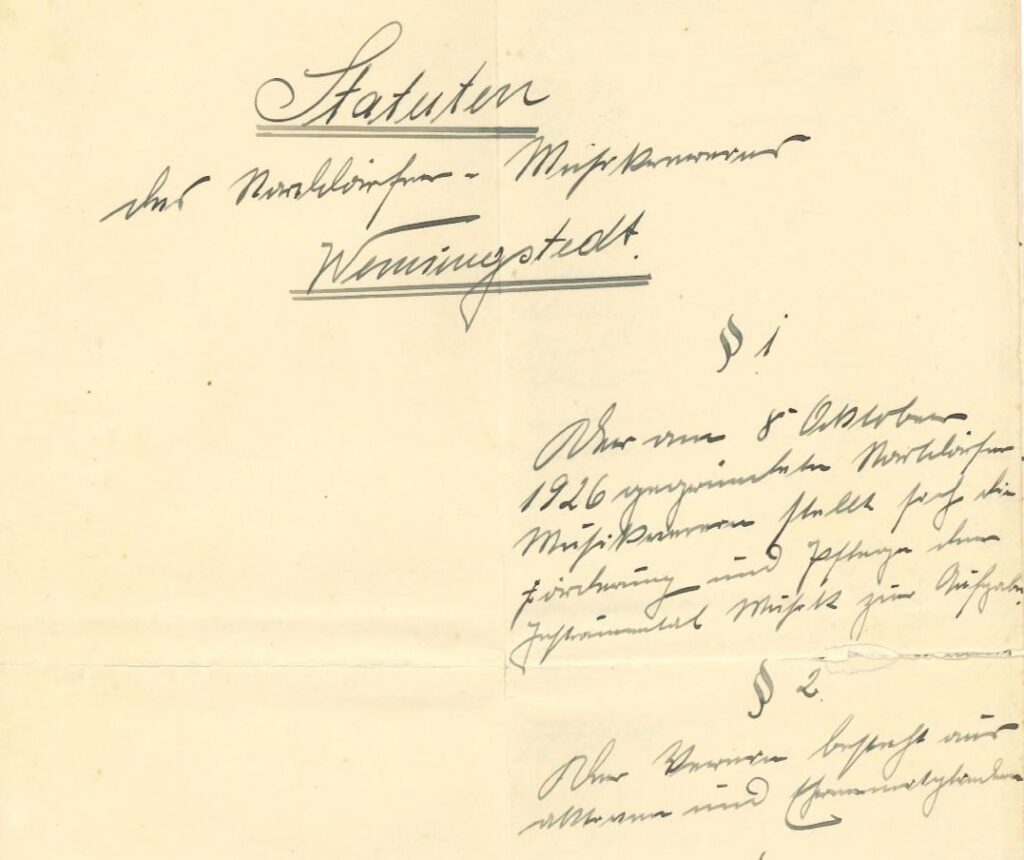 Statuten
des Norddörfer - Musikvereins
Wenningstedt.
§ 1
Der am 8 Oktober
1926 gegründete Norddörfer
Musikverein stellt sich die
Förderung und Pflege der
Instrumental Musik zur Aufgabe.
§ 2.
Der Verein besteht aus
aktiven und Ehrenmitgliedern